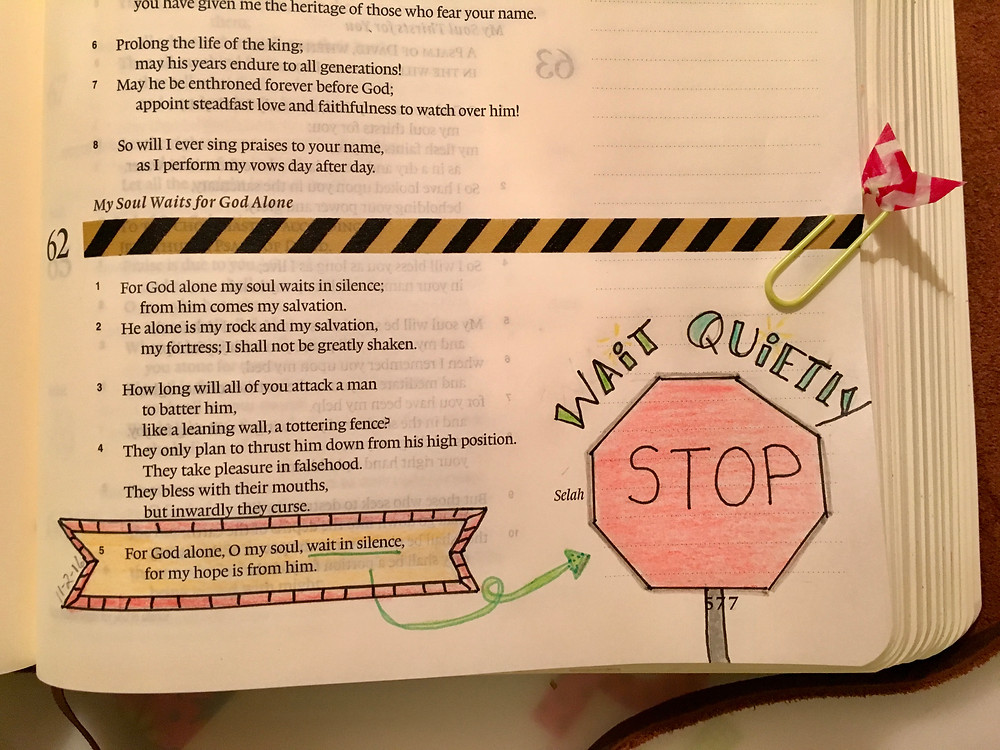 you have given me the heritage of those who fear your name.
6 Prolong the life of the king;
may his years endure to all generations!
7 May he be enthroned forever before God;
appoint steadfast love and faithfulness to watch over him!
8 So will I ever sing praises to your name,
as I perform my vows day after day.
My Soul Waits for God Alone
62
1 For God alone my soul waits in silence;
from him comes my salvation.
2 He alone is my rock and my salvation,
my fortress; I shall not be greatly shaken.
3 How long will all of you attack a man
to batter him,
like a leaning wall, a tottering fence?
4 They only plan to thrust him down from his high position.
They take pleasure in falsehood.
They bless with their mouths,
but inwardly they curse.
Selah
5 For God alone, O my soul, wait in silence,
for my hope is from him.
11-2-16
WAiT QUiETLY
STOP
577